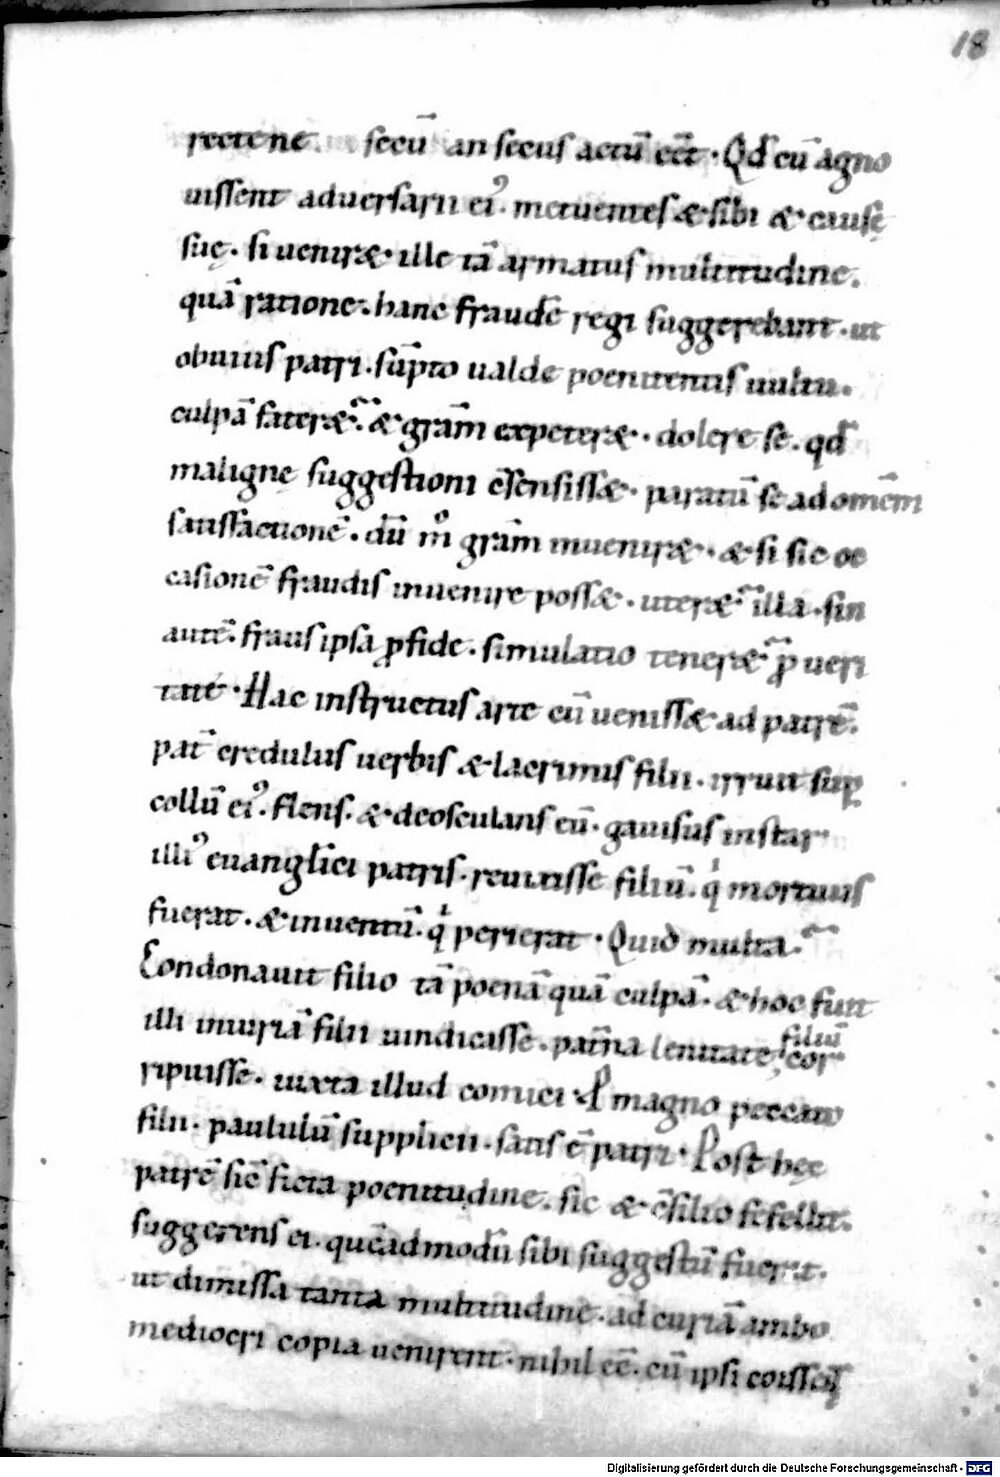 18
rectene secū an secus actū eēt · Qđ cū agno
uissent aduersarii ei᾽ · metuentes & sibi & causę
suę · si uenir& · ille tā armatus multitudine ·
quā ratione · hanc fraudē regi suggerebant · ut
obuius patri · sūpto ualde poenitentis uultu ·
culpā fater& · & grām expeter& · dolere se · qđ
malignę suggestioni c̄sensiss& · paratū se ad om̄em
satisfactionē · dū m° grām inuenir& · & si sic oc
casionē fraudis inuenire poss& · uter& illa · sin
autē · fraus ipsa ꝓ fide · simulatio tener& ꝓ ueri
tate · Hac instructus arte cū ueniss& ad patrē ·
pat̄ credulus uerbis & lacrimis filii · irruit suꝑ
collū ei᾽ · flens · & deosculans eū · gauisus instar
illi᾽ euanglici patris · reuixisse filiū · q̇ mortuus
fuerat · & inuentū · q̇ perierat · Quid multa ·
Condonauit filio tā poenā quā culpā · & hoc fuit
illi iniuriā filii uindicasse · pat̄na lenitate filiū cor
ripuisse · iuxta illud comici · P magno peccato
filii · paululū supplicii · satis ē patri · Post hęc
patrē sic̄ ficta poenitudine · sic & c̄silio fefellit ·
suggerens ei · quēadmodū sibi suggestū fuerat ·
ut dimissa tanta multitudine · ad curiā ambo
mediocri copia uenirent · nihil eē · cū ipsi
Digitalisierung gefördert durch die Deutsche Forschungsgemeinschaft - DFG